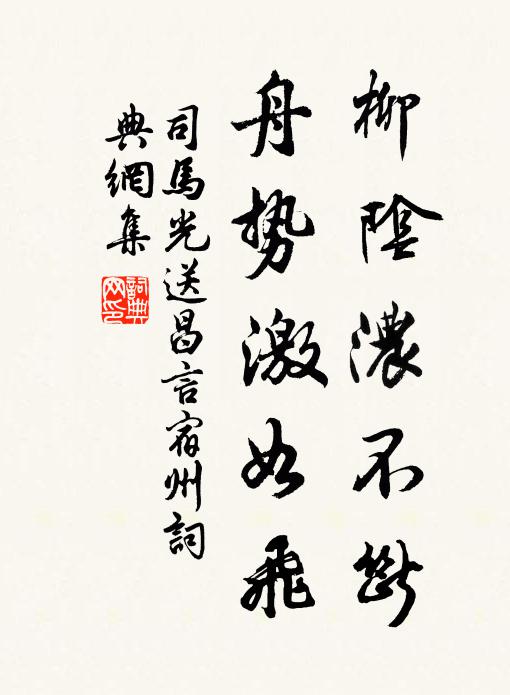 柳陰濃不斷
舟勢激如飛
司馬光送昌言宿州詞
典網集
詞典網印